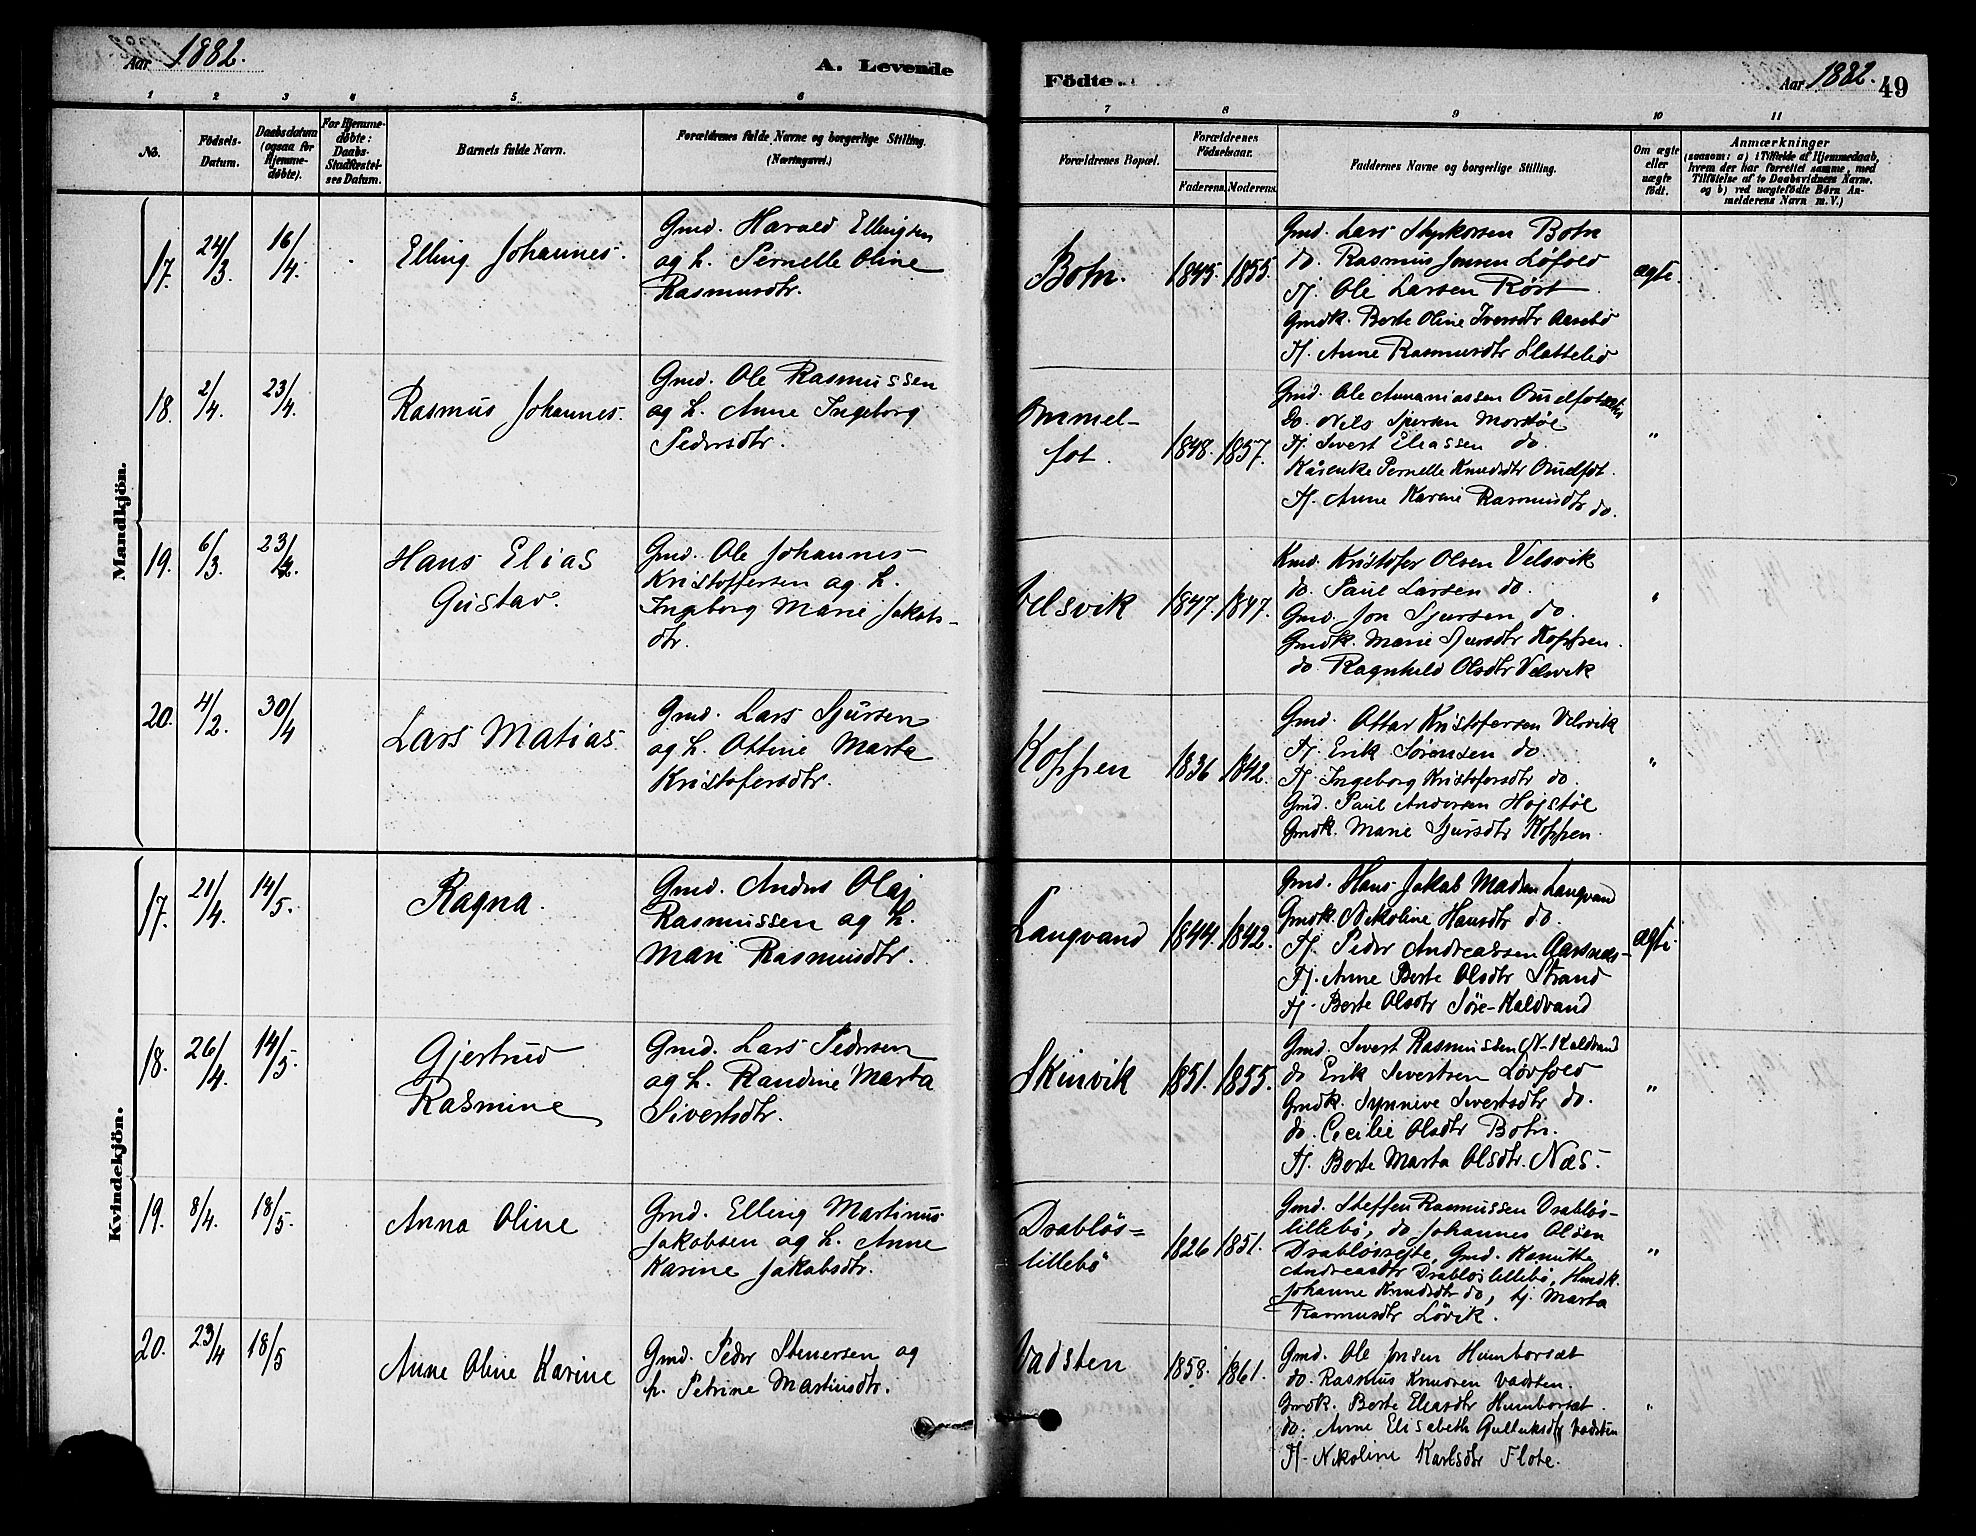 Aar 1882.
A. Levende
1 2 3 4 5 6
No.
Födsels-
Datum.
Daabsdatum
(ogsaa for
Hjemme-
døbte).
For Hjemme-
døbte:
Daabs-
Stadfæstel-
ses Datum.
Barnets fulde Navn.
Forældrenes fulde Navne og borgerlige Stilling.
(Næringsvei.)
Mandkjön.
17. 24/3. 16/4. Elling Johannes.
Gmd. Harald Ellingsen
og h. Pernelle Oline
Rasmusdtr.
18. 2/4. 23/4. Rasmus Johannes.
Gmd. Ole Rasmussen
og h. Anne Ingeborg
Pedersdtr.
19. 6/3. 23/4. Hans Elias
Gustav.
Gmd. Ole Johannes
Kristoffersen og h.
Ingeborg Marie Jakobs-
dtr.
20. 4/2. 30/4 Lars Matias.
Gmd. Lars Sjursen
og h. Ottine Marta
Kristofersdtr.
Kvindekjön.
17. 21/4. 14/5. Ragna.
Gmd. Andres Olaj
Rasmussen og h.
Mari Rasmusdtr.
18. 26/4. 14/5. Gjertrud
Rasmine
Gmd. Lars Pedersen
og h. Randine Marta
Sivertsdtr.
19. 8/4. 18/5. Anna Oline
Gmd. Elling Martinus
Jakobsen og h. Anne
Karine Jakobsdtr.
20. 23/4 18/5 Anne Oline Karine
Gmd. Peder Stenersen og
h. Petrine Martinsdtr.
Födte.
Aar 1882. 49
7 8 9 10 11
Forældrenes Bopæl.
Forældrenes
Födselsaar.
Faderens. Moderens.
Faddernes Navne og borgerlige Stilling.
Om ægte
eller
uægte
födt.
Anmærkninger
(saasom: a) i Tilfælde af Hjemmedaab,
hvem der har forrettet samme, med
Tilföielse af to Daabsvidners Navne,
og b) ved uægtefödte Börn An-
melderens Navn m. V.)
Botn. 1845. 1855.
Gmd. Lars Styrkorsen Botn
do. Rasmus Jonsen Løfold
Tj. Ole Larsen Røst
Gmdk. Berte Oline Iversdtr Aasebø
Tj. Anne Rasmusdtr Slattelid
ægte.
Ommel-
fot. 1848. 1857.
Gmd. Ole Ananiassen Omelfot
Do. Nils Sjursen Morstøl
Tj. Sivert Eliassen do.
Kårenke Pernelle Knudsdtr Omelfot.
Tj. Anne Karine Rasmusdtr do.
"
Velsvik 1847. 1847.
Kmd. Kristofer Olsen Velsvik
do. Paul Larsen do.
Gmd. Jon Sjursen do.
Gmdk. Marie Sjursdtr Koppen.
do. Ragnhild Olsdtr Velsvik
"
Koppen 1836 1842.
Gmd. Ottar Kristofersen Velsvik
Tj. Erik Sørensen do.
Tj. Ingeborg Kristofersdtr do.
Gmd. Paul Andersen Højstøl
Gmdk. Marie Sjursdtr Koppen.
"
Langvand 1844. 1842.
Gmd. Hans Jakob Madsen Langvand
Gmdk. Nikoline Hansdtr do.
Tj. Peder Andreassen Aarsnæs-
Tj. Anne Berte Olsdtr Strand
Tj. Berte Olsdtr Søre-Kaldvand
ægte.
Skinvik 1851. 1855.
Gmd. Sivert Rasmussen N-Kaldvand
do Erik Sivertsen Løvfold
Gmdk. Synneve Sivertsdtr do.
do. Cecilie Olsdtr Botn.
Tj. Berte Marta Olsdtr. Næs.
"
Drabløs=
lillebø 1826 1851.
Gmd. Steffen Rasmussen Drabløs-
lillebø, do Johannes Olsen
Drabløsrejte, Gmd. Kanutte
Andreasdtr Drabløslillebø, Hmdk.
Johanne Knudsdtr do, tj. Marta
Rasmusdtr Løvik.
"
Vadsten 1858. 1861.
Gmd. Ole Jonsen Humborsæt
do. Rasmus Knudsen Vadsten.
Gmdk. Berte Eliasdtr Humborsæt.
do. Anne Elisabeth Gulleiksdtr Vadsten
Tj. Nikoline Karlsdtr Flote.
"